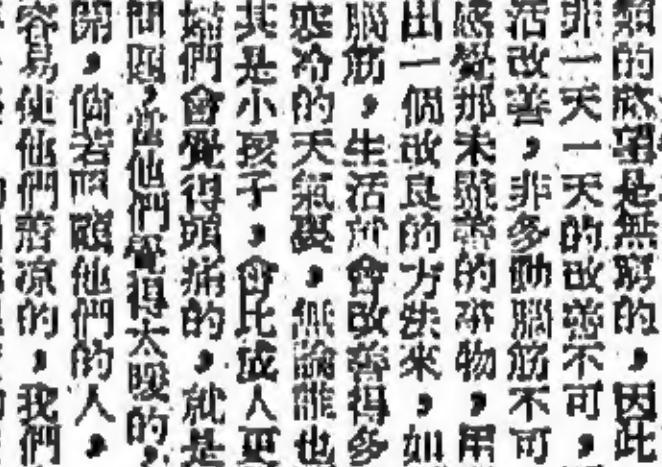 類的慾望是無窮的，因此
非一天一天的改善不可，
活改善，非多動腦筋不可
感覺那未盡善的事物，用
出一個改良的方法來，如
腦筋，生活於會改善得多
寒冷的天氣裏，無論誰也
其是小孩子，會比成人更
們會覺得頭痛的，就是
問題，當他們覺得太暖的，
開，倘若照顧他們的人，
容易使他們着凉的，我們